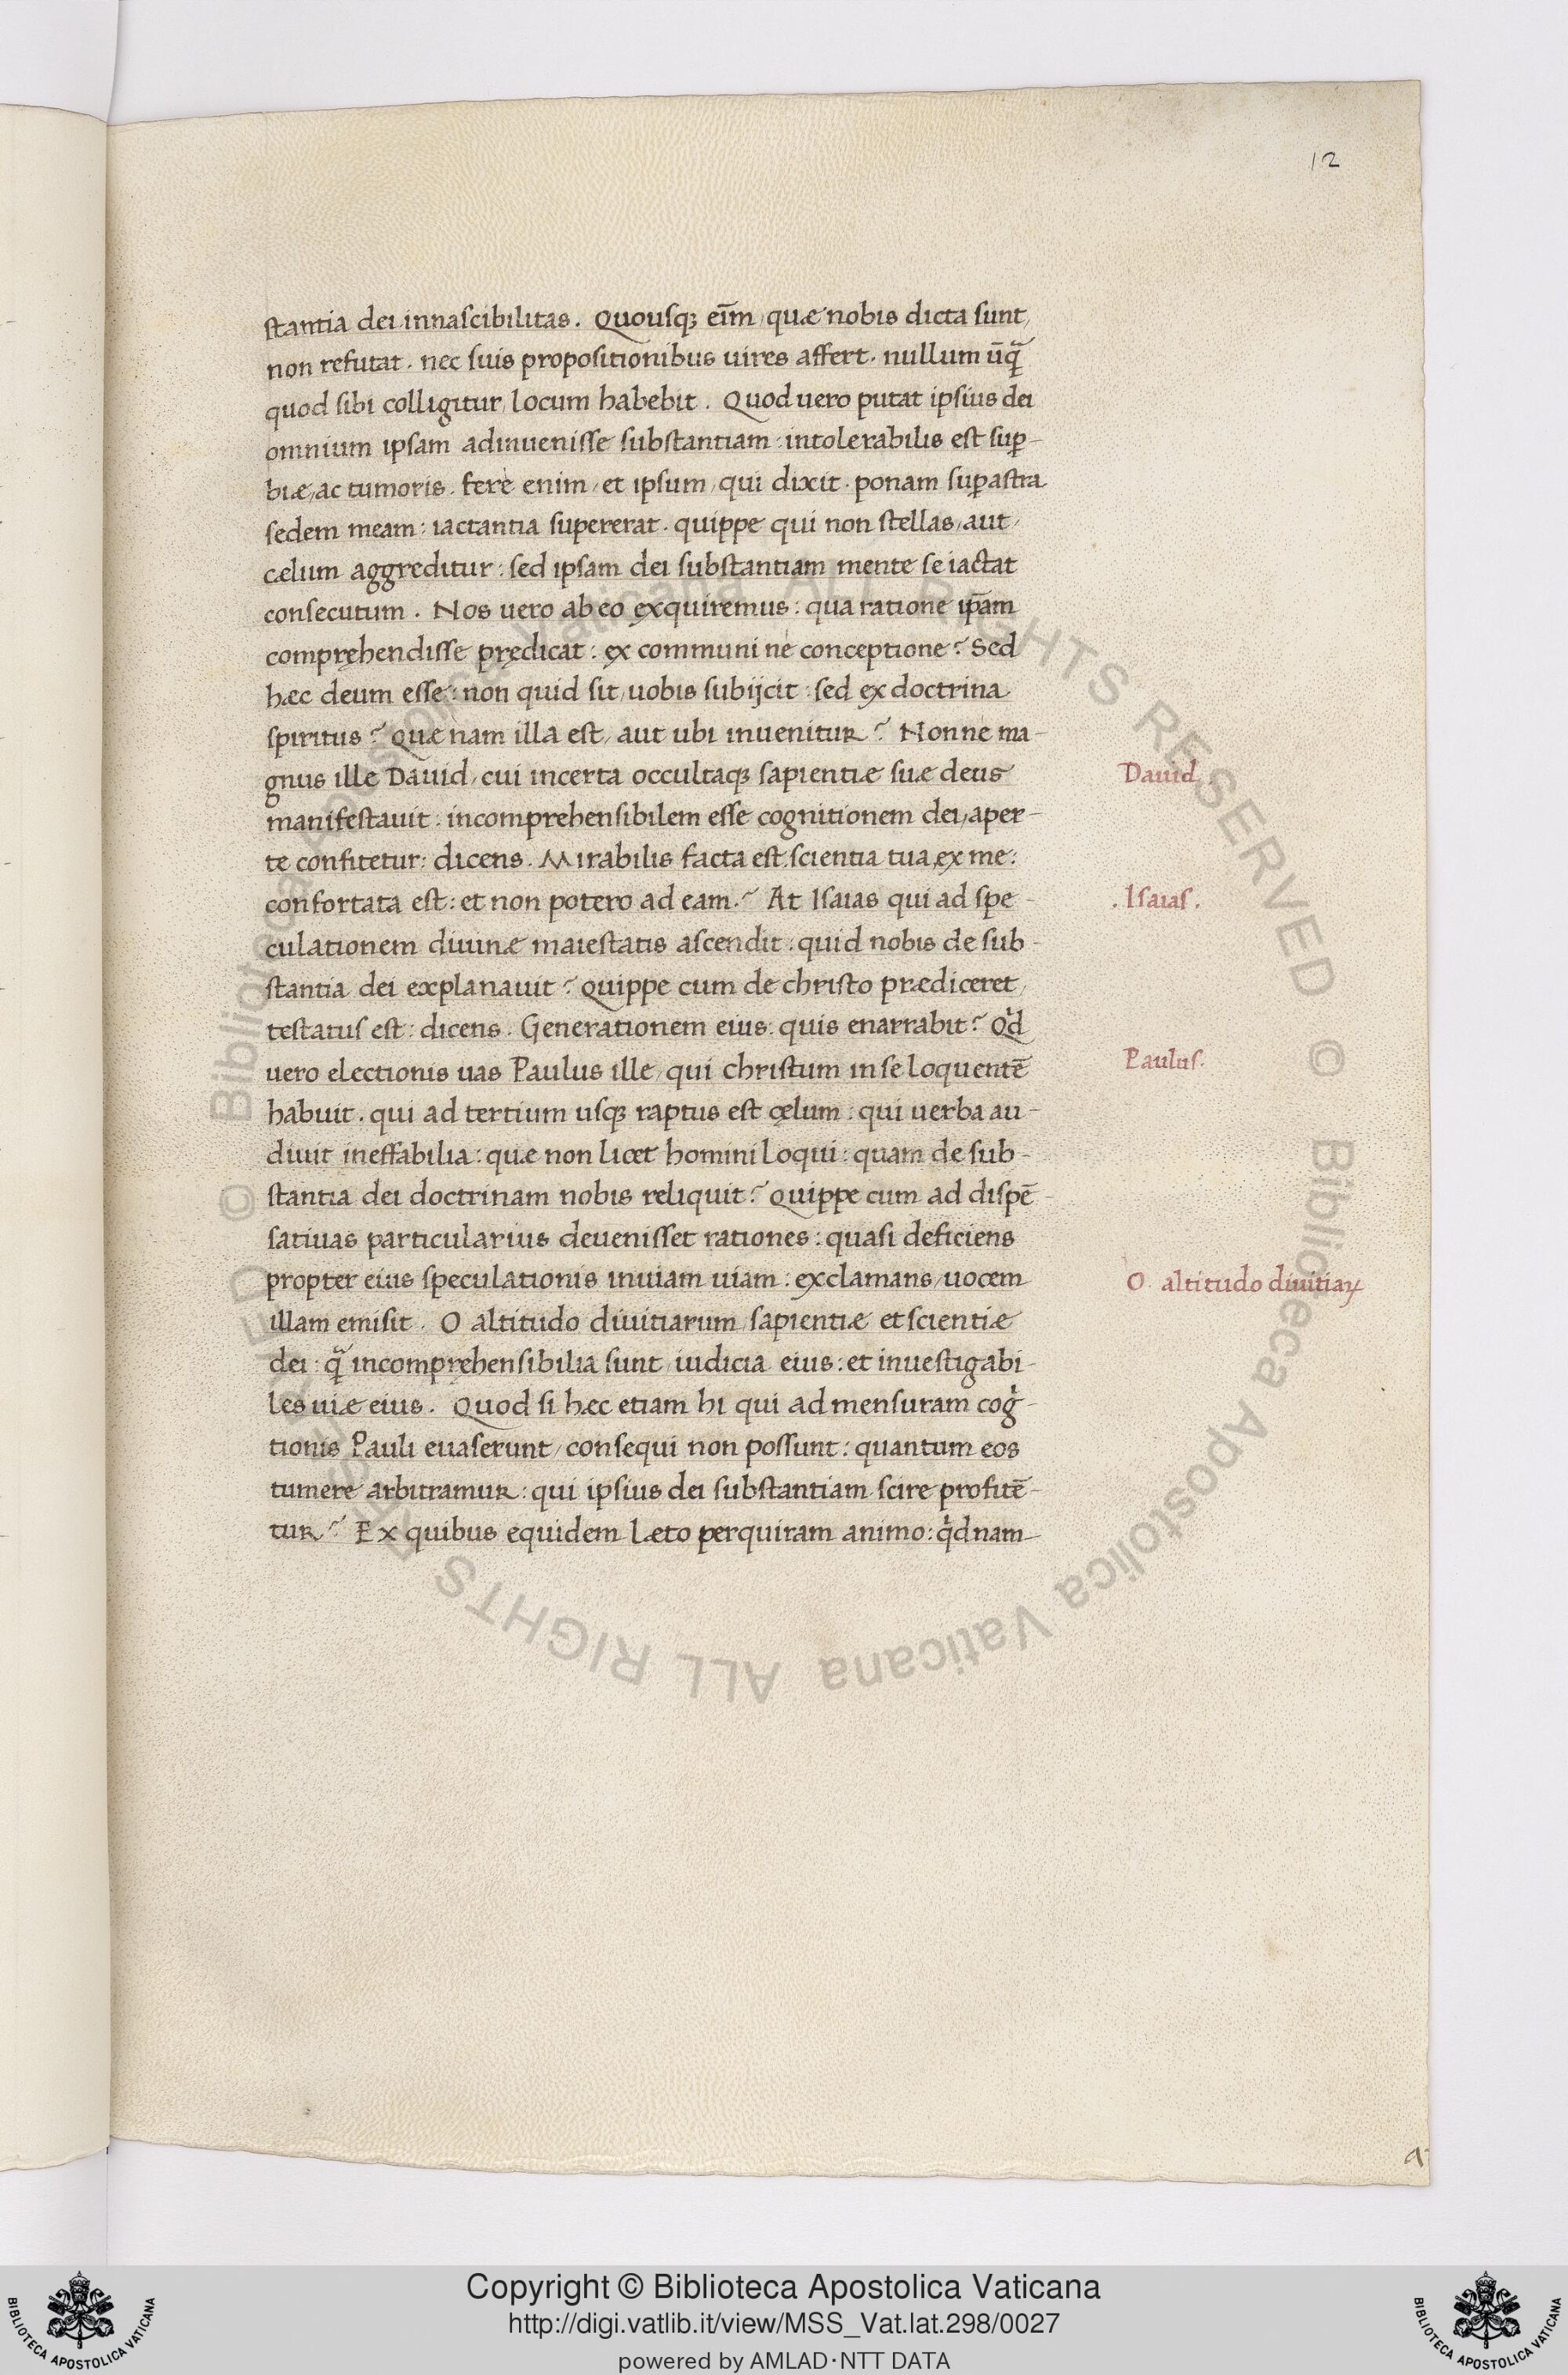 12
stantia dei innascibilitas. Quousq; eīm, quæ nobis dicta sunt,
non refutat. nec suis propositionibus uires affert. nullum ūq̃
quod sibi colligitur, locum habebit. Quod uero putat ipsius dei
omnium ipsam adinuenisse substantiam: intolerabilis est suꝑ-
biæ, ac tumoris. fere enim, et ipsum, qui dixit. ponam suꝑ astra
sedem meam: iactantia supererat. quippe qui non stellas, aut,
cælum aggreditur: sed ipsam dei substantiam mente se iactat
consecutum. Nos uero ab eo exquiremus: qua ratione ip̄am
compręhendisse prędicat: ex communi nè conceptione? Sed
hæc deum esse: non quid sit, uobis subijcit: sed ex doctrina
spiritus? Quæ nam illa est, aut ubi inuenitur? Nonne ma-
gnus ille Dauid, cui incerta occultaq; sapientiæ suæ deus
manifestauit: incomprehensibilem esse cognitionem dei, aper-
te confitetur: dicens. Mirabilis facta est scientia tua ex me:
confortata est: et non potero ad eam.? At Isaias qui ad spe-
culationem diuinæ maiestatis ascendit: quid nobis de sub-
stantia dei explanauit? Quippe cum de christo prædiceret,
testatus est: dicens. Generationem eius: quis enarrabit? Qd́
uero electionis uas Paulus ille, qui christum in se loquentē
habuit. qui ad tertium usq; raptus est cęlum: qui uerba au-
diuit ineffabilia: quæ non licet homini loqui: quam de sub-
stantia dei doctrinam nobis reliquit? Quippe cum ad dispē-
satiuas particularius deuenisset rationes: quasi deficiens
propter eius speculationis inuiam uiam: exclamans, uocem
illam emisit. O altitudo diuitiarum, sapientiæ et scientiæ
dei: q̃ incompręhensibilia sunt iudicia eius: et inuestigabi-
les uiæ eius. Quod si hæc etiam hi qui ad mensuram cog̾-
tionis Pauli euaserunt, consequi non possunt: quantum eos
tumere arbitramur: qui ipsius dei substantiam scire profitē-
tur? Ex quibus equidem læto perquiram animo: qd́nam
Dauid
.Isaias.
Paulus.
O altitudo diuitiaꝝ
Copyright © Biblioteca Apostolica Vaticana
http://digi.vatlib.it/view/MSS_Vat.lat.298/0027
powered by AMLAD·NTT DATA
BIBLIOTECA APOSTOLICA VATICANA
BIBLIOTECA APOSTOLICA VATICANA
© Biblioteca Apostolica Vaticana ALL RIGHTS RESERVED
© Biblioteca Apostolica Vaticana ALL RIGHTS RESERVED